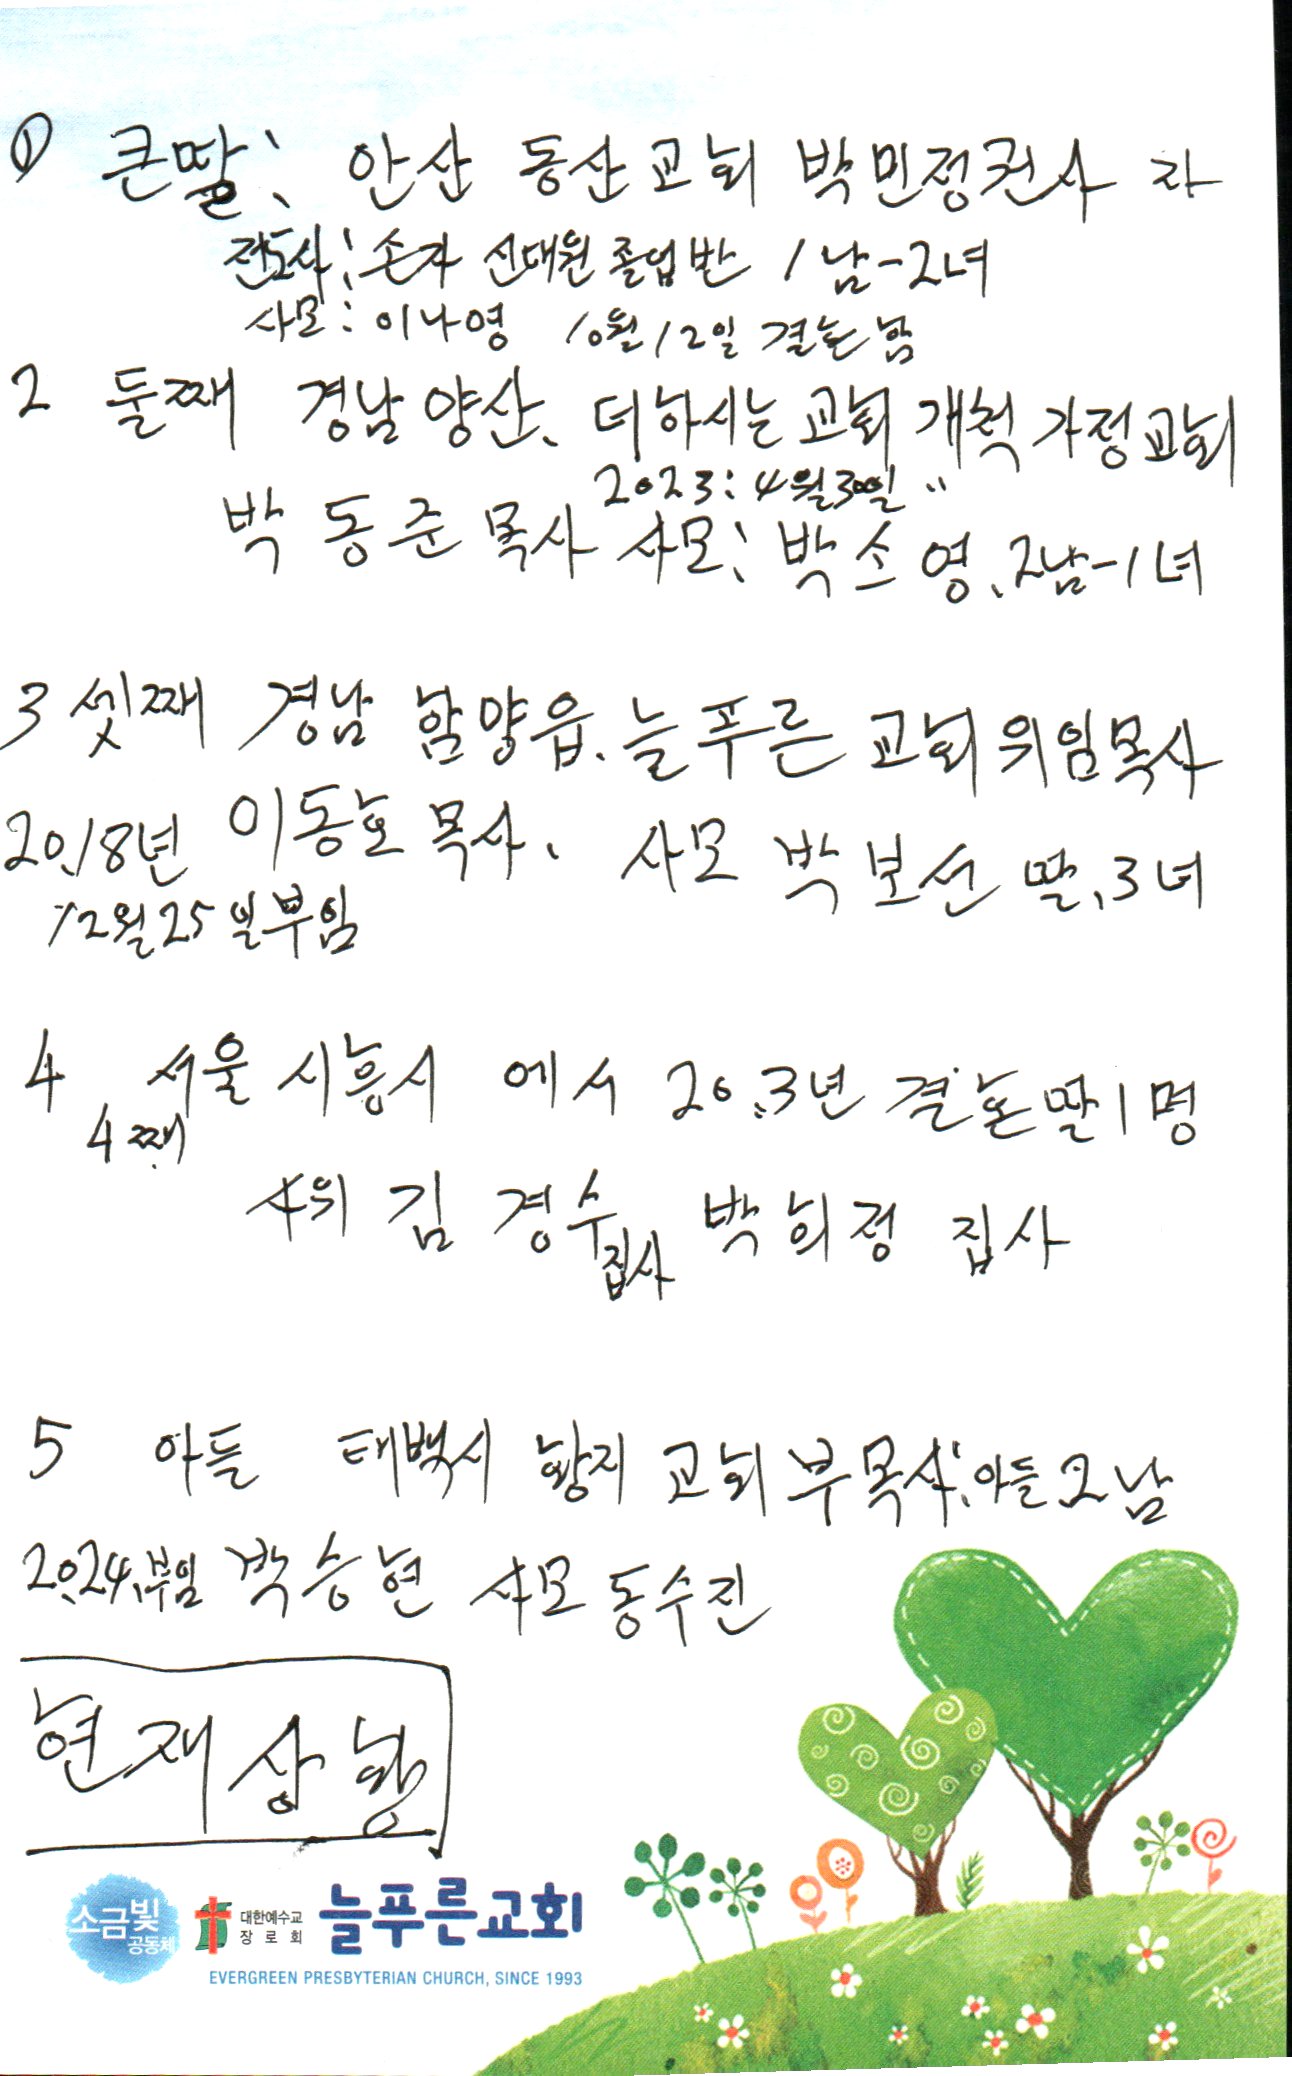 ① 큰딸: 안산 동산교회 박민정권사 자
전도사: 손자 신대원 졸업반 1남-2녀
사모: 이나영 10월12일 결혼함
2 둘째 경남양산, 더하시는교회 개척 가정교회
2023: 4월30일 〃
박동준목사 사모: 박소영, 2남-1녀
3 셋째 경남 함양읍, 늘푸른 교회 위임목사
2018년 이동호목사, 사모 박보선 딸, 3녀
12월25일부임
4 서울 시흥시 에서 20.3년 결혼 딸1명
4째
사위 김경수 집사 박희정 집사
5 아들 태백시 황지교회 부목사, 아들 2남
2024, 부임 박승현 사모 동수진
현재상황
소금빛
공동체
대한예수교
장로회
늘푸른교회
EVERGREEN PRESBYTERIAN CHURCH, SINCE 1993